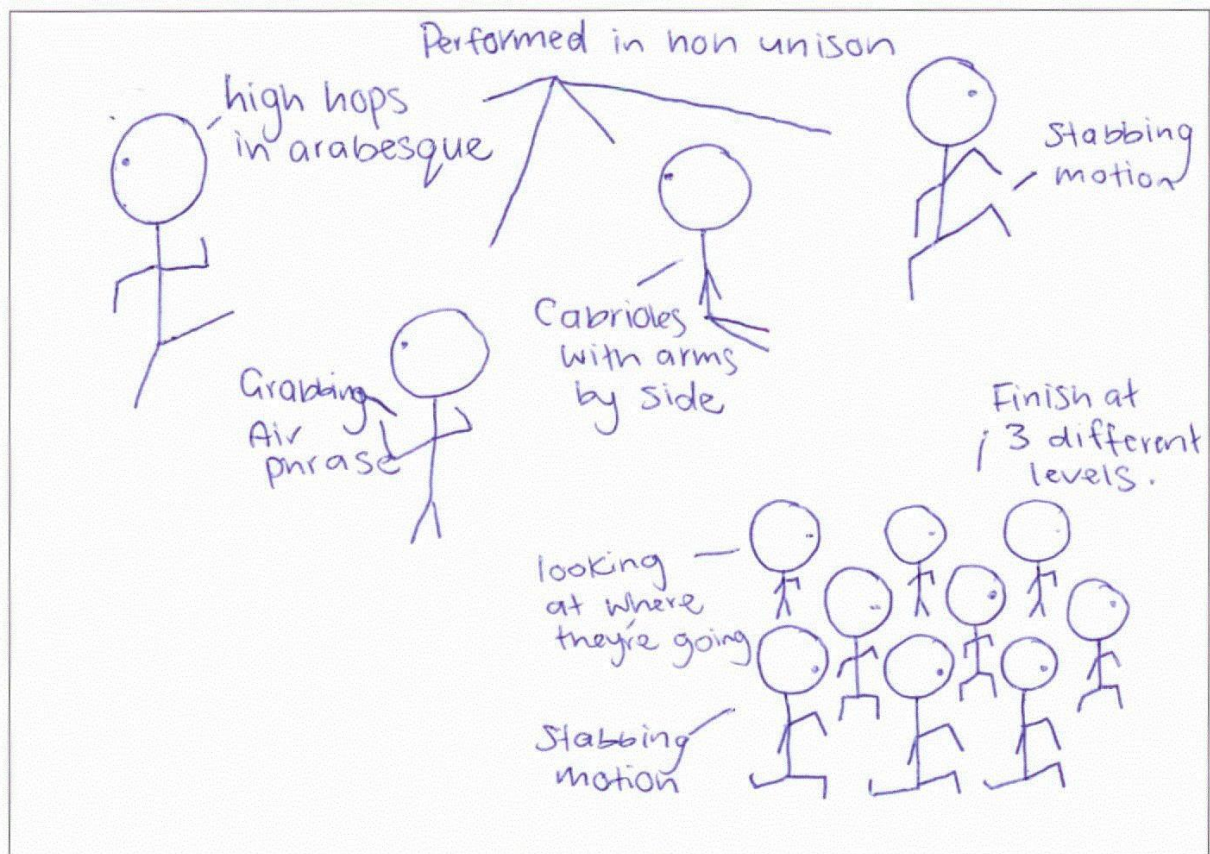 Performed in non unison
high hops
in arabesque
Stabbing
motion
Cabrioles
with arms
by side
Grabbing
Air
phrase
Finish at
3 different
levels.
looking
at where
they're going
Stabbing
motion